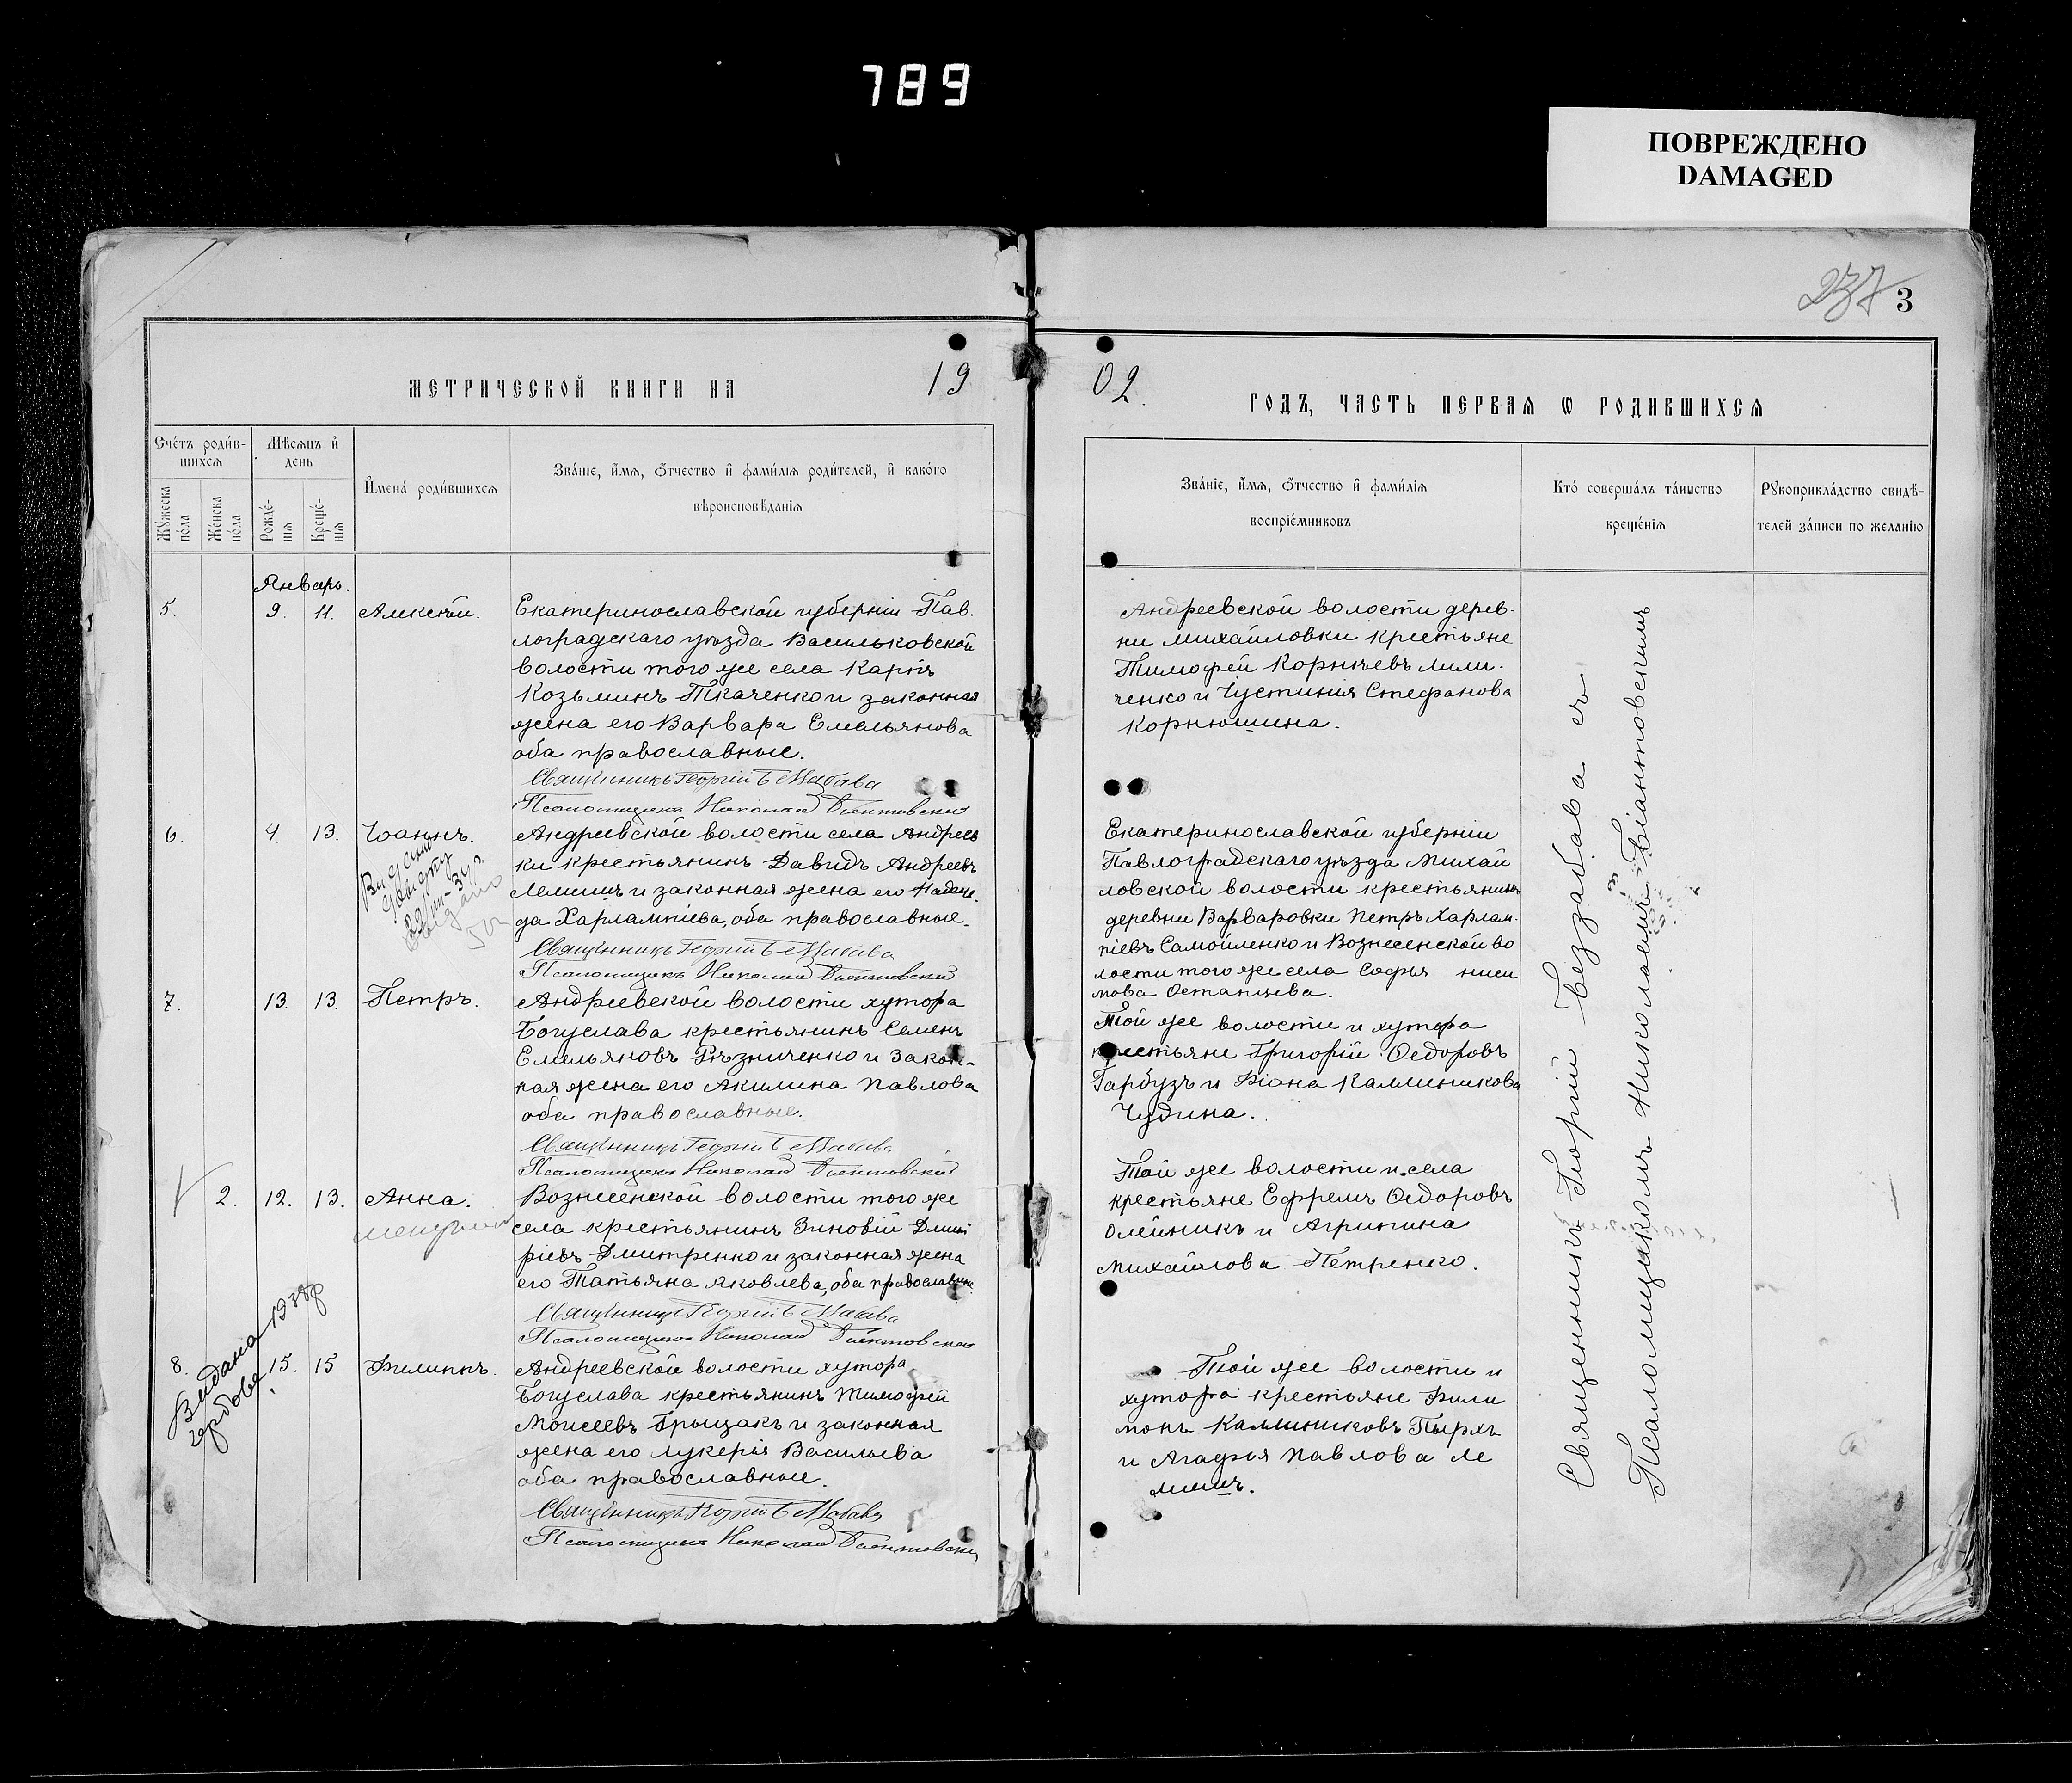 789
ПОВРЕЖДЕНО
DAMAGED
237 3
МЕТРИЧЕСКОЙ КНИГИ НА 19
02. ГОДЪ, ЧАСТЬ ПЕРВАЯ Ѡ РОДИВШИХСЯ
Счетъ родив-
шихся
Мѣсяцъ и
день
Мужеска
пола
Женска
пола
Рожде-
нія
Креще-
нія
Имена родившихся
Званіе, имя, отчество и фамилія родителей, и какого
вѣроисповѣданія
Званіе, имя, отчество и фамилія
воспріемниковъ
Кто совершалъ таинство
крещенія
Рукоприкладство свидѣ-
телей записи по желанію
Январь.
5. 9. 11. Алексѣй.
Екатеринославской губерніи Пав.
лоградскаго уѣзда Васильковской
волости того же села Карпъ
Козьминъ Ткаченко и законная
жена его Варвара Емельянова
оба православные.
Священникъ Георгій
Псаломщикъ Николай Біантовскій
Андреевской волости дерев-
ни Михайловки крестьяне
Тимофей Корнѣевъ Мили-
ченко и Іустинія Стефанова
Корнюшина.
6. 4. 13. Іоаннъ.
Андреевской волости села Андреев
ки крестьянинъ Давидъ Андреевъ
Лемишъ и законная жена его Надеж.
да Харлампіева, оба православные.
Священникъ Георгій
Псаломщикъ Николай Біантовскій
Екатеринославской губерніи
Павлоградскаго уѣзда Михай
ловской волости крестьянинъ
деревни Варваровки Петръ Харлам.
піевъ Самойленко и Вознесенской во
лости того же села Софья
мова Остапцева.
7. 13. 13. Петръ.
Андреевской волости хутора
Богуслава крестьянинъ Семенъ
Емельяновъ Рѣзниченко и закон-
ная жена его Акилина Павлова
оба православные.
Священникъ Георгій
Псаломщикъ Николай Біантовскій
Той же волости и хутора
крестьяне Григорій Ѳедоровъ
Гарбузъ и Фіона Каллиникова
Чудина.
2. 12. 13. Анна.
Вознесенской волости того же
села крестьянинъ Зиновій Дмит
ріевъ Дмитренко и законная жена
его Татьяна Яковлева, оба православные
Священникъ Георгій
Псаломщикъ Николай Біантовскій
Той же волости и села
крестьяне Ефремъ Ѳедоровъ
Олейникъ и Агрипина
Михайлова Петренко.
Видана 1938р
8. 15. 15 Филиппъ.
Андреевской волости хутора
Богуслава крестьянинъ Тимофей
Моисеевъ Грыцакъ и законная
жена его Лукерія Васильева
оба православные.
Священникъ Георгій
Псаломщикъ Николай Біантовскій
Той же волости и
хутора крестьяне Фили
монъ Каллиниковъ Пырхъ
и Агафья Павлова Ле
мишъ.
Священникъ Георгій Беззабава съ
Псаломщикомъ Николаемъ Біантовскимъ